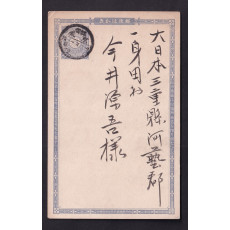 大日本三重縣河藝郡
一身田村
今井源吾様